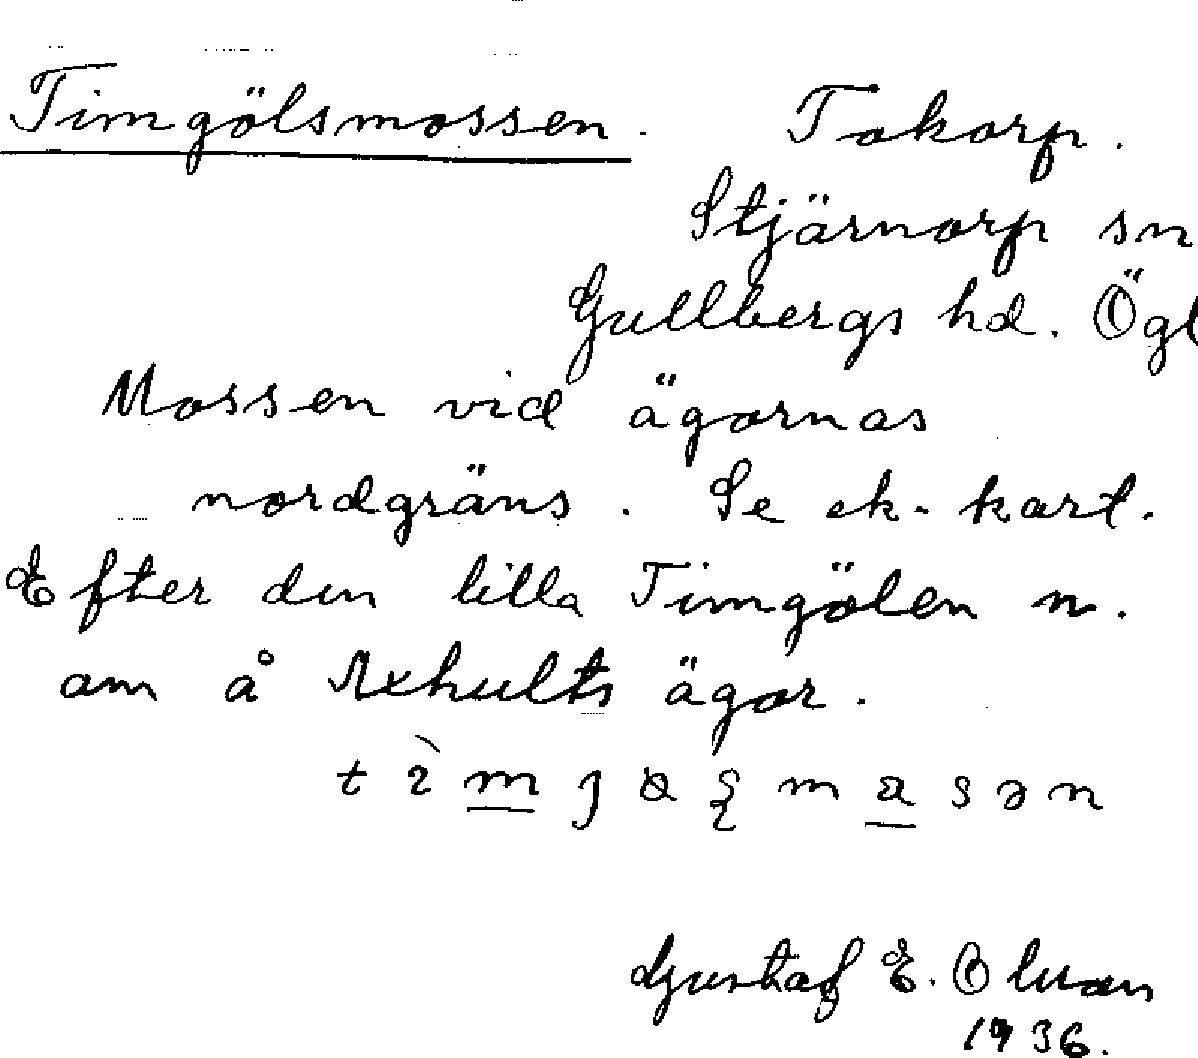 Timgölsmossen. Takorp.
Stjärnorp sn
Gullbergs hd. Ögl
Mossen vid ägornas
nordgräns. Se ek. kart.
Efter den lilla Timgölen n.
om å Axhults ägor.
Gustaf E. Olsson
1936.